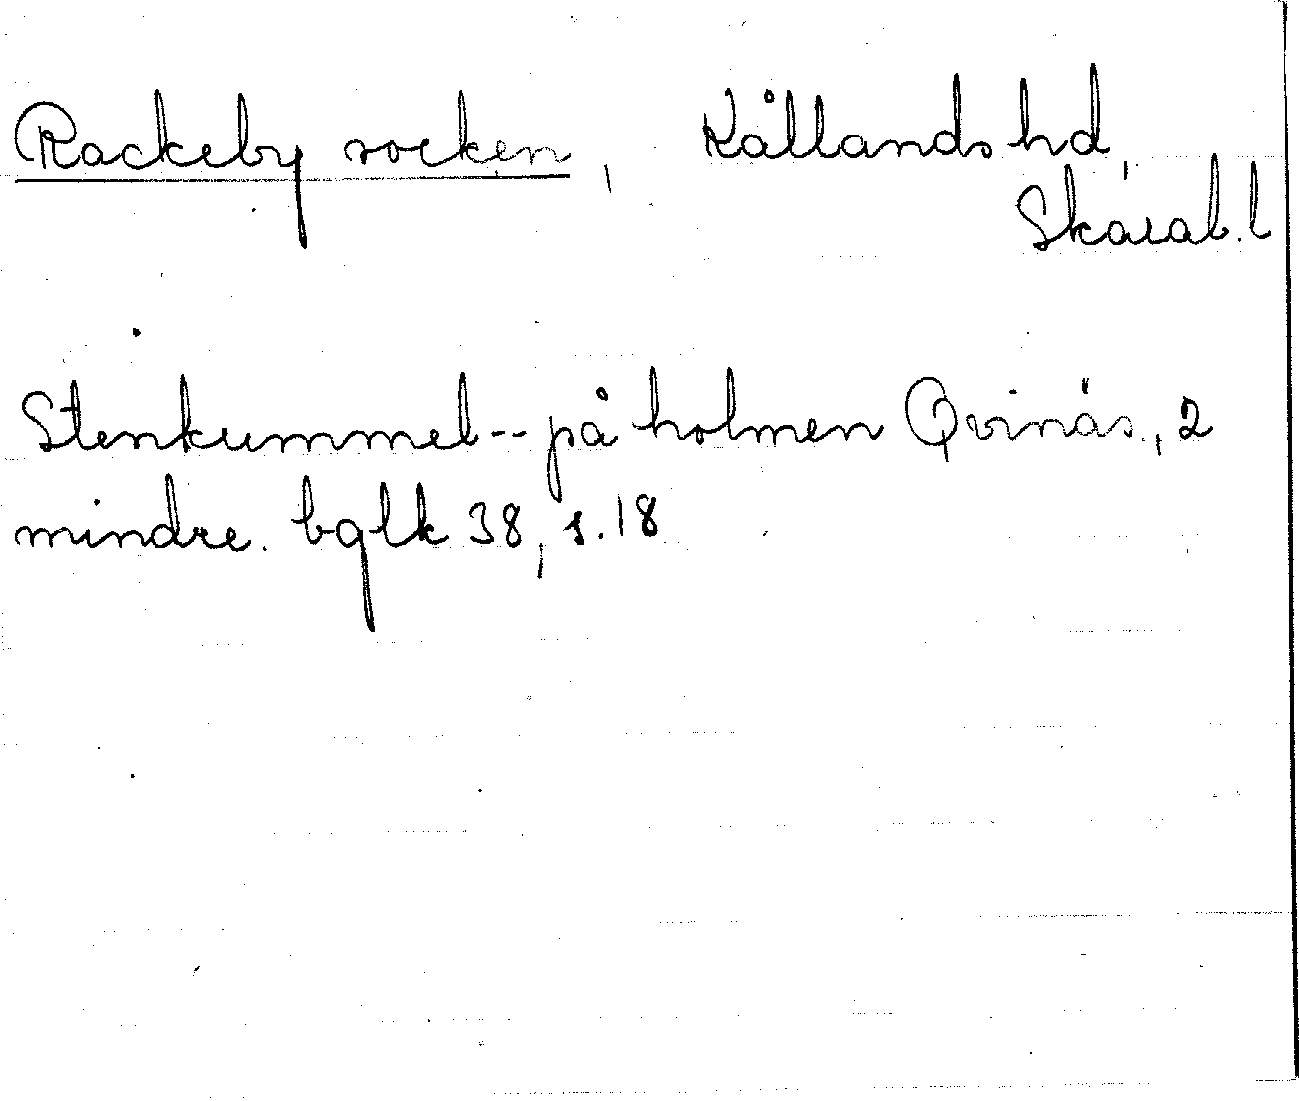 Rackeby socken, Kållands hd,
Skarab. l
Stenkummel -- på holmen Qvinäs, 2
mindre. bglk 38, s. 18